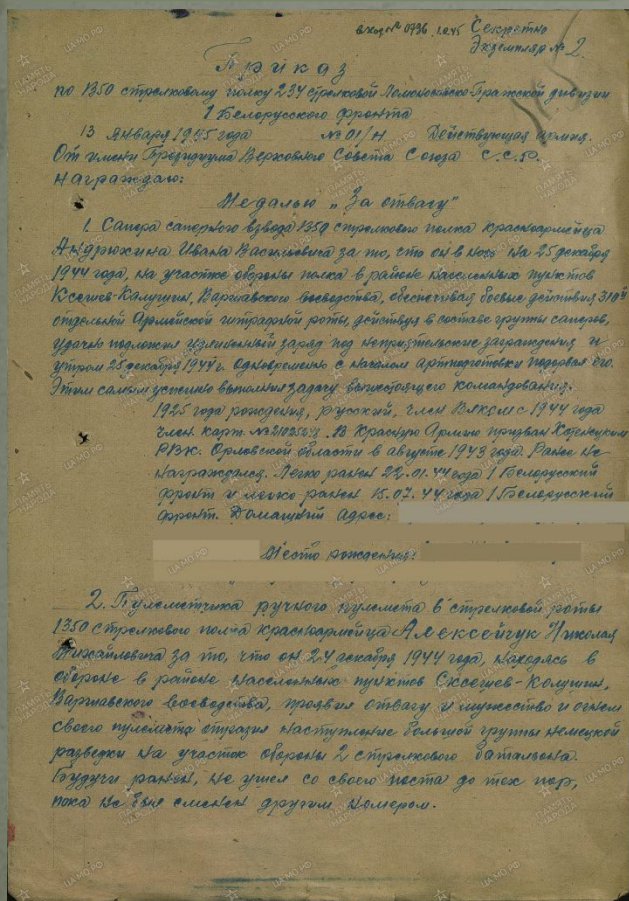 вход № 0796 Секретно
Экземпляр № 2
Приказ
по 1350 стрелковому полку 234 стрелковой Ломоносовско-Пражской дивизии
1 Белорусского фронта
13 Января 1945 года № 01/Н Действующая армия.
От имени Президиума Верховного Совета Союза С.С.Р.
награждаю:
Медалью „За отвагу"
1. Сапера саперного взвода 1350 стрелкового полка красноармейца
Андрюхина Ивана Васильевича за то, что он в ночь на 25 декабря
1944 года, на участке обороны полка в районе населенных пунктов
Варшавского воеводства, обеспечивая боевые действия
отдельной Армейской штрафной роты, действуя в составе группы саперов,
удачно подложил удлиненный заряд под неприятельские заграждения и
утром 25 декабря 1944 г. одновременно с началом артподготовки подорвал его.
Этим самым успешно выполнил задачу вышестоящего командования.
1925 года рождения, русский, член ВЛКСМ с 1944 года
член. карт. № В Красную Армию призван
РВК. Орловской области в августе 1943 года. Ранее не
награждался. Легко ранен 22.01.44 года 1 Белорусский
фронт и легко ранен 15.07.44 года 1 Белорусский
фронт. Домашний адрес:
Место рождения:
2. Пулеметчика ручного пулемета 6 стрелковой роты
1350 стрелкового полка красноармейца Алексейчук Николая
Михайловича за то, что он 24 декабря 1944 года, находясь в
обороне в районе населенных пунктов
Варшавского воеводства, проявил отвагу и мужество и огнем
своего пулемета отразил наступление большой группы немецкой
разведки на участок обороны 2 стрелкового батальона.
Будучи ранен, не ушел со своего поста до тех пор,
пока не был сменен другим номером.